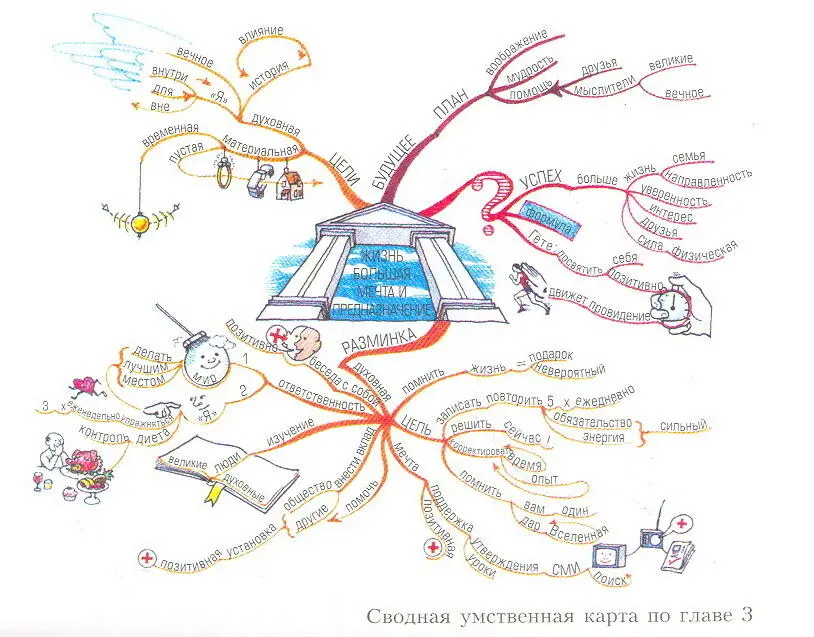 вечное
внутри
для
вне
«Я»
влияние
история
духовная
временная
пустая
материальная
ЦЕЛИ
БУДУЩЕЕ
ПЛАН
воображение
мудрость
помощь
друзья
мыслители
великие
вечное
УСПЕХ
больше
жизнь
семья
направленность
уверенность
интерес
друзья
сила физическая
формула
Гете:
посвятить
себя
позитивно
движет провидение
ЖИЗНЬ
БОЛЬШАЯ
МЕЧТА И
ПРЕДНАЗНАЧЕНИЕ
РАЗМИНКА
духовная
позитивно
беседа с собой
ответственность
1
мир
делать
лучшим
местом
2
«Я»
3 х еженедельно упражнять
контроль диета
изучение
люди
великие
духовные
внести вклад
общество
другие
помочь
позитивная установка
помнить
жизнь = подарок
невероятный
ЦЕЛЬ
записать повторить 5 х ежедневно
обязательство
энергия
сильный
решить
сейчас !
корректировать
время
опыт
помнить
вам один
дар Вселенная
мечта
поддержка
позитивная
утверждения
уроки
СМИ
поиск
Сводная умственная карта по главе 3